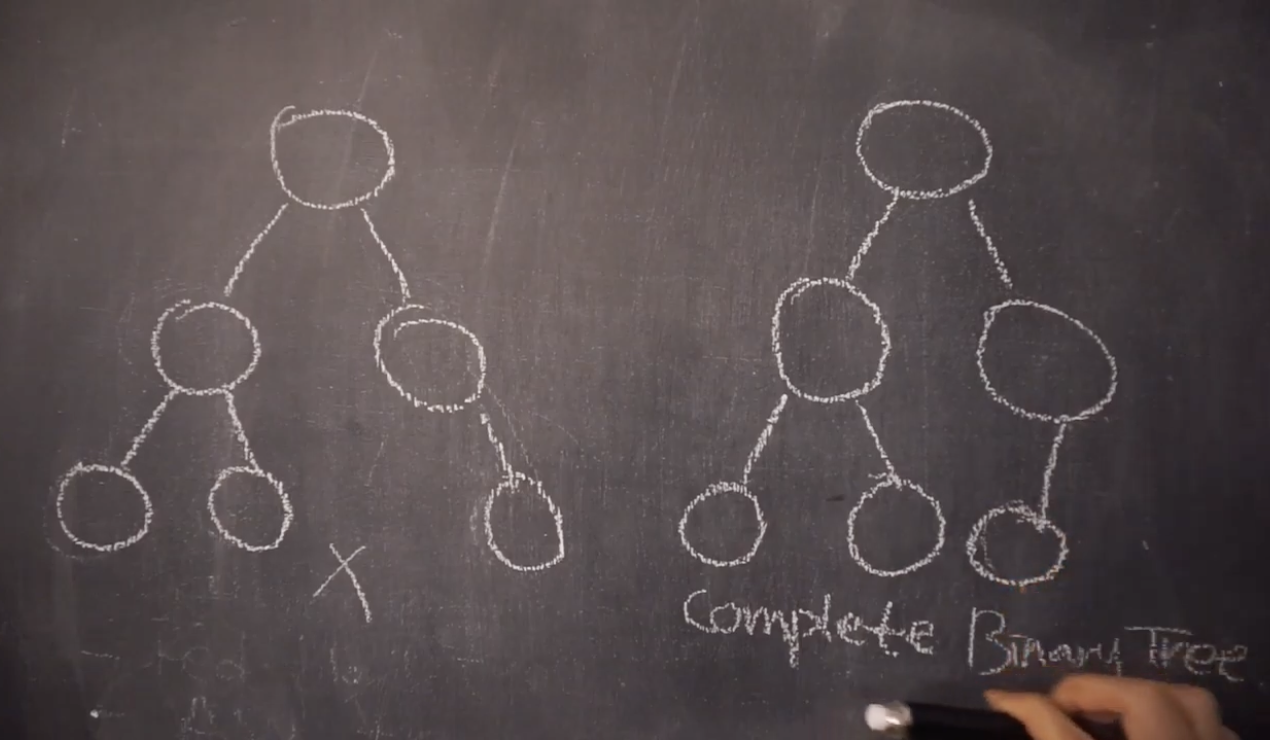 X
Complete Binary Tree